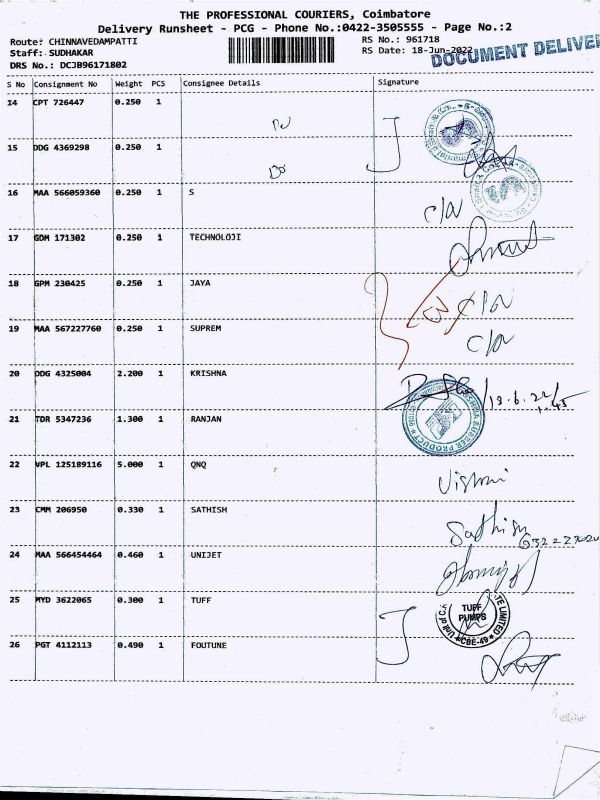 THE PROFESSIONAL COURIERS, Coimbatore
Delivery Runsheet - PCG - Phone No.:0422-3505555 - Page No.:2
Route: CHINNAVEDAMPATTI
Staff: SUDHAKAR
DRS No.: DCJB96171802
RS No.: 961718
RS Date: 18-Jun-2022
DOCUMENT DELIVER
S No Consignment No Weight PCS Consignee Details Signature
14 CPT 726447 0.250 1
15 DDG 4369298 0.250 1
Do
16 MAA 566059360 0.250 1 S
C/W
17 GDM 171302 0.250 1 TECHNOLOJI
18 GPM 230425 0.250 1 JAYA
C/W
19 MAA 567227760 0.250 1 SUPREM
C/W
20 DDG 4325004 2.200 1 KRISHNA
21 TDR 5347236 1.300 1 RANJAN
RUBBER PRODUCT
22 VPL 125189116 5.000 1 QNQ
Vishni
23 CMM 206950 0.330 1 SATHISH
Sathish
24 MAA 566454464 0.460 1 UNIJET
25 MYD 3622065 0.300 1 TUFF
TUFF
PUMPS
CBE-49
26 PGT 4112113 0.490 1 FOUTUNE